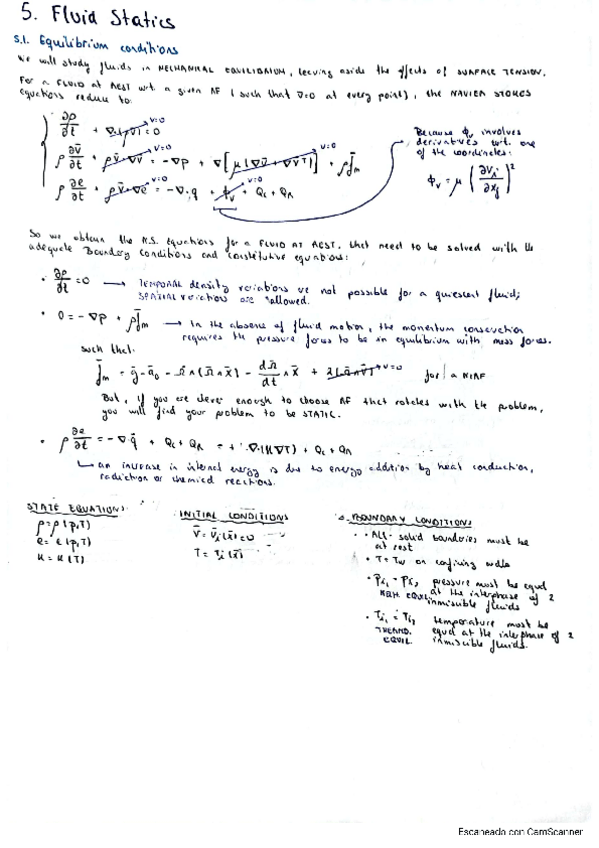 5. Fluid Statics
5.1. Equilibrium conditions
We will study fluids in MECHANICAL EQUILIBRIUM, leaving aside the effects of SURFACE TENSION.
For a FLUID AT REST wrt a given RF (such that v̄=0 at every point), the NAVIER STOKES
equations reduce to:
∂ρ/∂t + ∇·(ρv̄) = 0 v=0
ρ ∂v̄/∂t + ρv̄·∇v̄ = -∇p + ∇[μ(∇v̄ + ∇v̄ᵀ)] + ρf̄m v=0 v=0
ρ ∂e/∂t + ρv̄·∇e = -∇·q̄ + ϕv + Qc + QR v=0 v=0
Because ϕv involves
derivatives wrt. one
of the coordinates:
ϕv = μ (∂vi/∂xj)²
So we obtain the N.S. equations for a FLUID AT REST, that need to be solved with the
adequate Boundary Conditions and constitutive equations:
• ∂ρ/∂t = 0 → TEMPORAL density variations are not possible for a quiescent fluid;
SPATIAL variations are allowed.
• 0 = -∇p + ρf̄m → In the absence of fluid motion, the momentum conservation
requires the pressure forces to be in equilibrium with mass forces.
such that:
f̄m = ḡ - ā₀ - Ω̄∧(Ω̄∧x̄) - dΩ̄/dt ∧ x̄ + 2(Ω̄∧v̄) v=0 for a NIRF
But, if you are clever enough to choose RF that rotates with the problem,
you will find your problem to be STATIC.
• ρ ∂e/∂t = -∇·q̄ + Qc + QR = + ∇·(K∇T) + Qc + QR
an increase in internal energy is due to energy addition by heat conduction,
radiation or chemical reactions.
STATE EQUATIONS
ρ=ρ(p,T)
e=e(p,T)
K=K(T)
INITIAL CONDITIONS
v̄ = v̄i(x̄)=0
T = Ti(x̄)
BOUNDARY CONDITIONS
• All solid boundaries must be
at rest
• T=Tw on confining walls
• Pi₁ = Pi₂ pressure must be equal
MECH. EQUIL. at the interphase of 2
inmiscible fluids
• Ti₁ = Ti₂ temperature must be
THERMO. equal at the interphase of 2
EQUIL. inmiscible fluids.
Escaneado con CamScanner